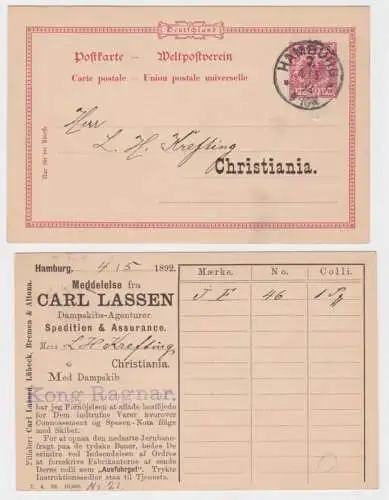 Deutschland
Postkarte – Weltpostverein
Carte postale – Union postale universelle
Nur für die Adresse
HAMBURG
Herr
L. H. Krefting
Christiania.
Hamburg, 4/5 1892.
Meddelelse fra
CARL LASSEN
Dampskibs-Agenturer.
Spedition & Assurance.
Herr L H Krefting
Christiania.
Med Dampskib
Kong Ragnar.
har jeg Fornöjelsen at aflade hosföjede
for Dem indtrufne Varer hvorover
Connossement og Spesen-Nota fölge
med Skibet.
For at opnaa den nedsatte Jernbane-
fragt paa de tydske Baner, bedes De
erindre ved Indsendelsen af Ordres
at foreskrive Fabrikanterne at sende
Deres Gods som „Ausfuhrgut“. Trykte
Instructionsskilte staa til Tjeneste.
Filialer: Carl Lassen, Lübeck, Bremen & Altona.
Mærke. No. Colli.
J F 46